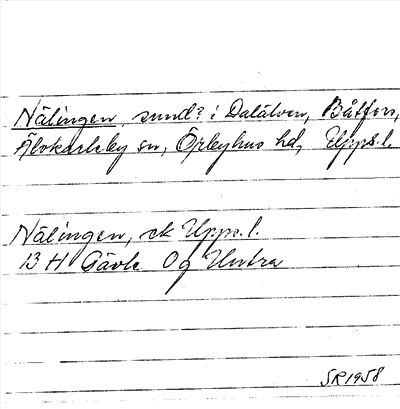 Nälingen, sund? i Dalälven, Båtfors,
Älvkarleby sn, Örbyhus hd, Upps.l.
Nälingen, ek Upps.l.
13 H Gävle Og Untra
SR 1958